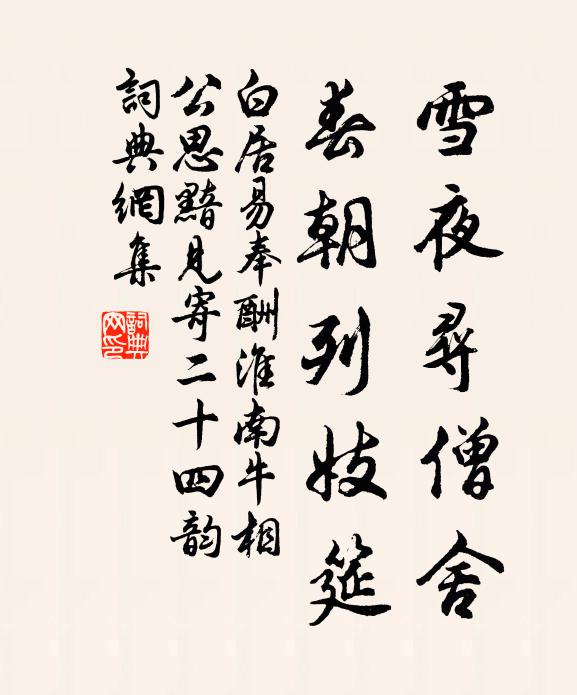 雪夜尋僧舍
春朝列妓筵
白居易奉酬淮南牛相
公思黯見寄二十四韵
詞典網集
詞典
网印